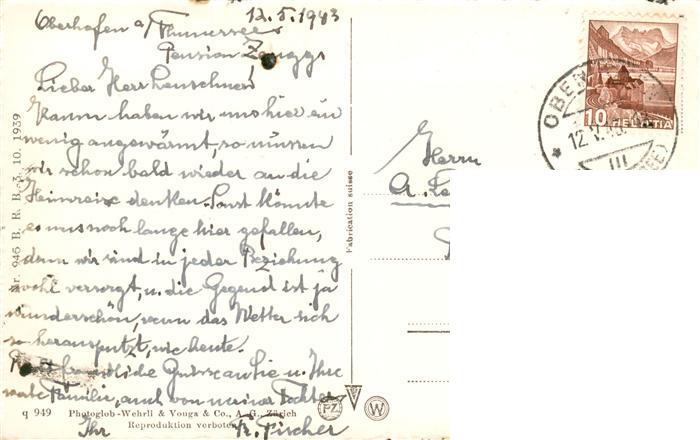 12.5.1943
Oberhofen a/Thunersee
Pension Zaugg
Lieber Herr
Kaum haben wir uns hier ein
wenig angewärmt, so müssen
wir schon bald wieder an die
Heimreise denken. Sonst könnte
es uns noch lange hier gefallen,
denn wir sind in jeder Beziehung
wohl versorgt, u. die Gegend ist ja
wunderschön, wenn das Wetter sich
so herausputzt, wie heute.
freundliche Grüsse an Sie u. Ihre
werte Familie, auch von meiner Tochter
Ihr Fr. Fischer
q 949 Photoglob-Wehrli & Vouga & Co., A. G., Zürich
Reproduktion verboten
B. R. B. 3. 10. 1939
Fabrication suisse
PZ
W
Herrn
A.
10 HELVETIA
OBER
12.V.
III